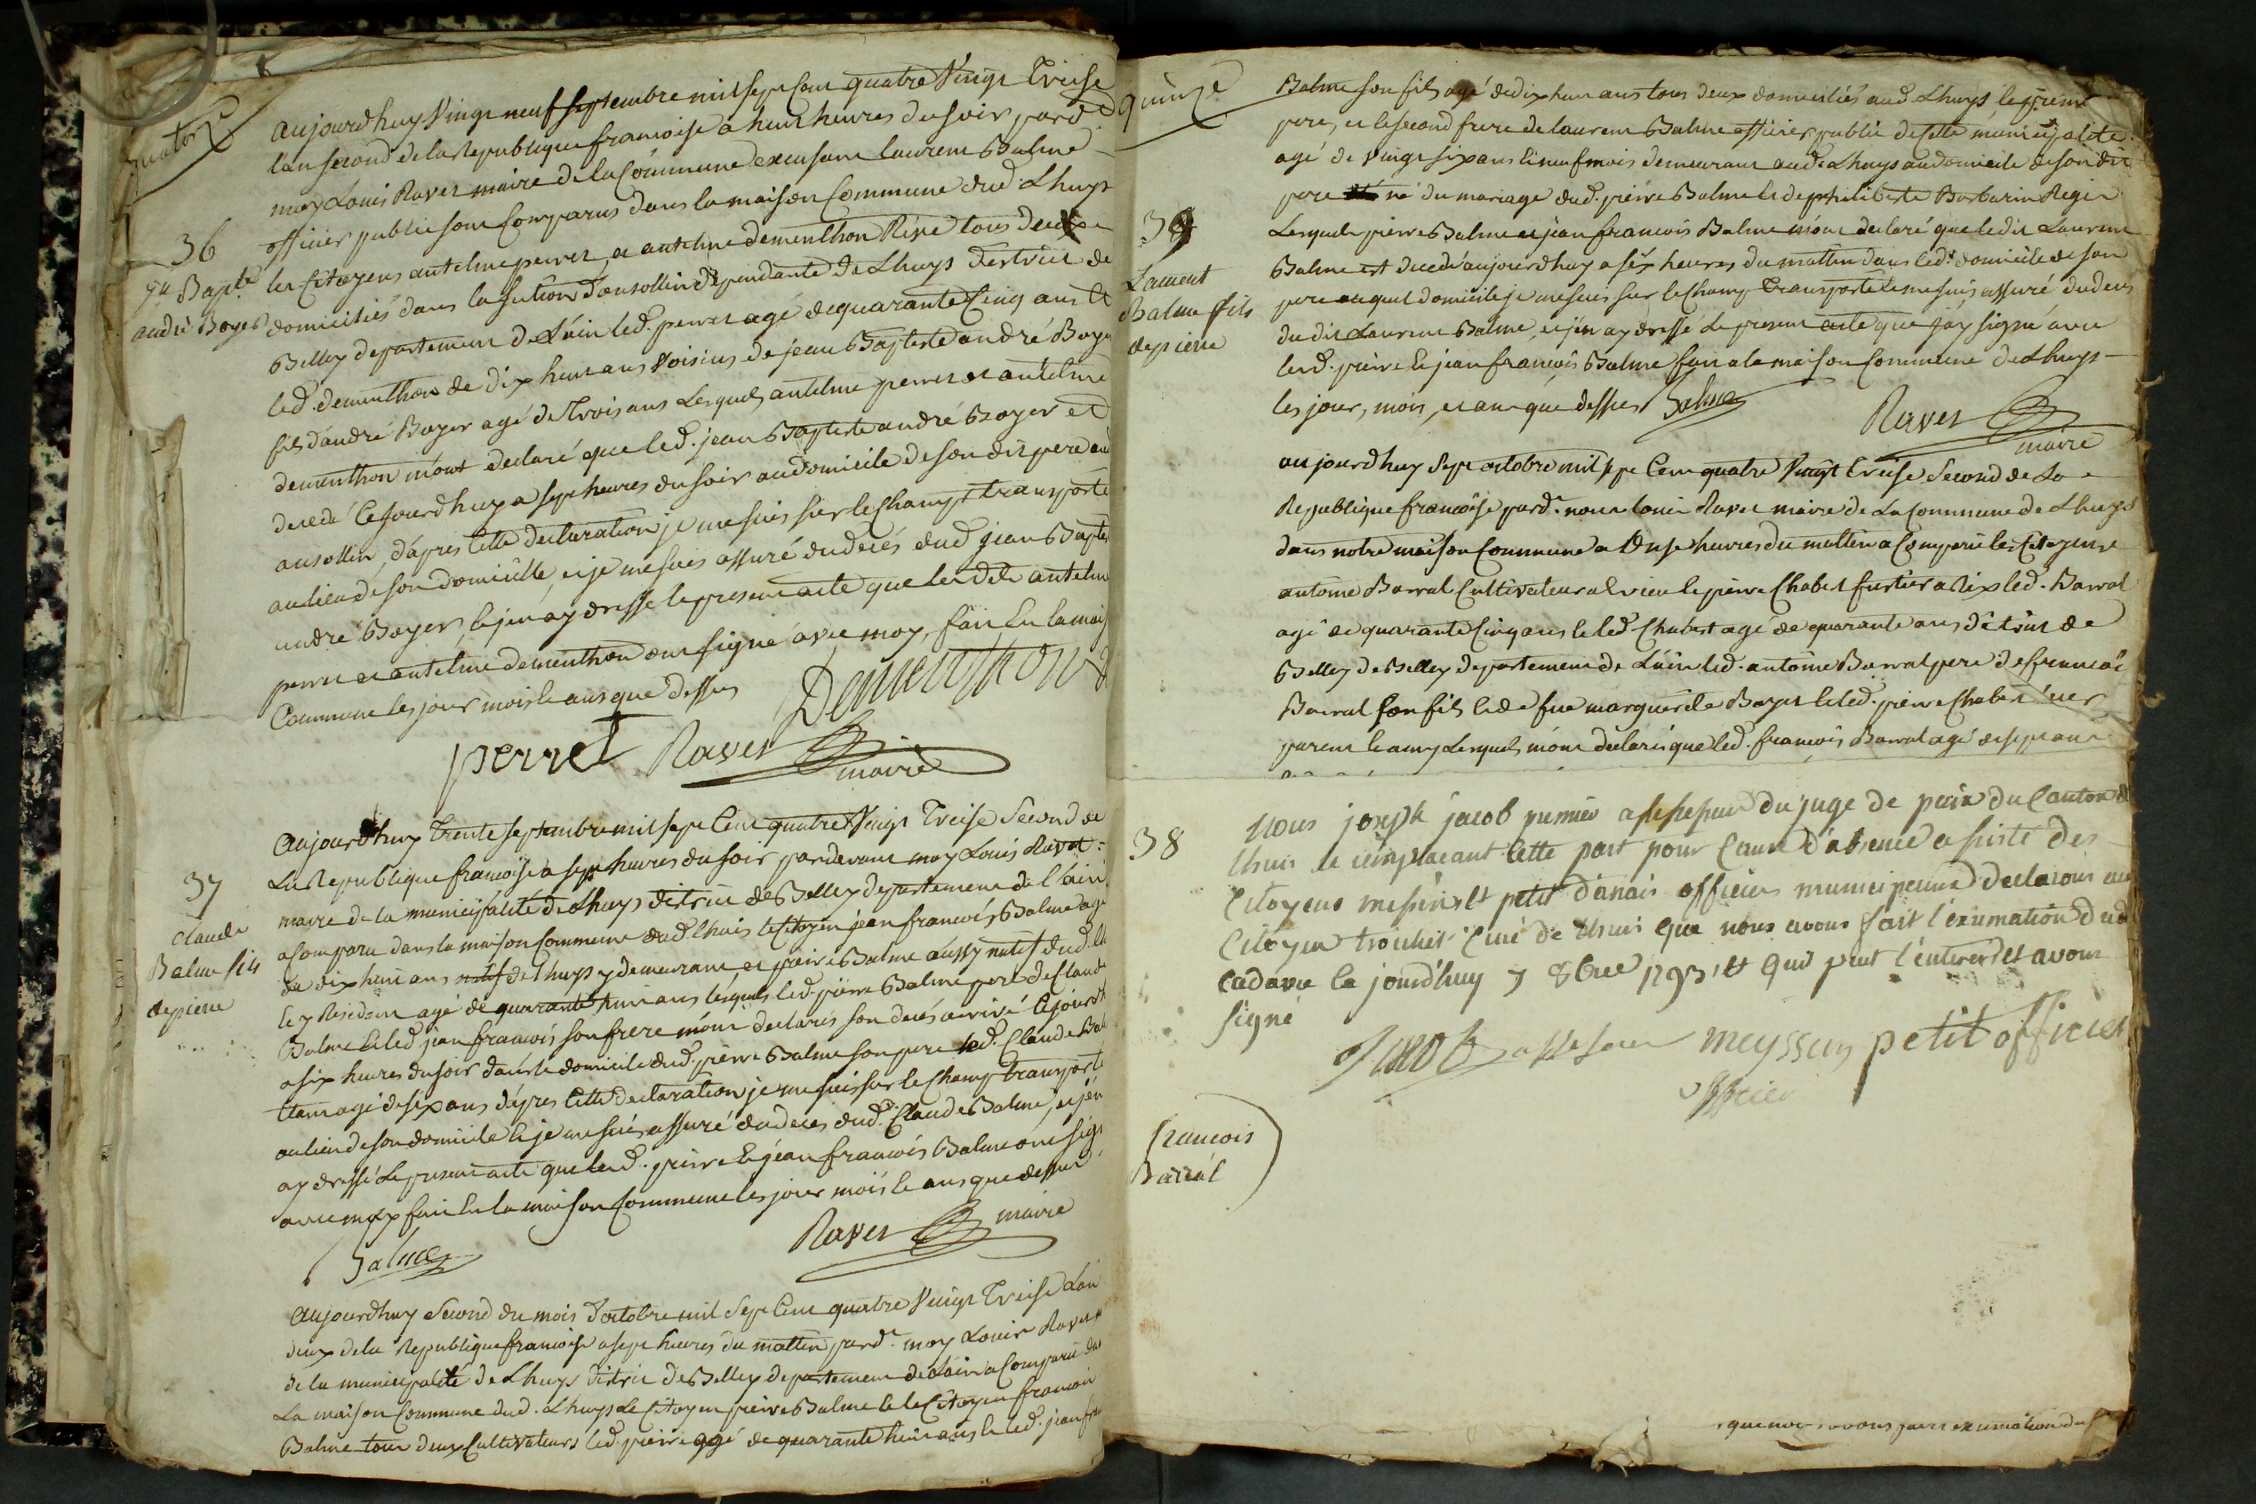 quatorze
aujourdhuy Vingt neuf septembre mil sept Cent quatre Vingt Treise
lan second de la Republique francoise a huit heures du soir pard.
moy Louis Ravet maire de la Commune excusant laurent Balme
officier public sont Comparus dans la maison Commune dud Lhuys
36
les Citoyens antelme perret, et antelme dementhon Rive tous deux
jn Bapte
andré Boyer
domiciliés dans la section d'ansollin dépendante de Lhuys District de
Belley departement de L'ain led. perret agé de quarante Cinq ans et
led. dementhon de dix huit ans Voisins de jean Baptiste andré Boyer
fils d'andré Boyer agé de Trois ans Lesquels antelme perret et antelme
dementhon m'ont declaré que led. jean Baptiste andré Boyer est
decedé Cejourdhuy a sept heures du soir au domicile de son dit pere
ansollin, d'après Cette declaration je me suis sur le Champ transporté
au lieu de son domicille, et je me suis assuré du decés dud jean Baptiste
andré Boyer, et j'en ay dressé le present acte que lesdits antelme
perret et antelme dementhon ont signé avec moy, fait En la maison
Commune les jour mois et ans que dessus Dementhon
perret Ravet maire
aujourdhuy Trente septembre mil sept Cent quatre Vingt Treise Second de
La Republique francoise a sept heures du soir pardevant moy Louis Ravet
37
maire de la municipalité de Lhuys district de Belley departement de l'ain
claude
Balme fils
de pierre
a Comparu dans la maison Commune dud Lhuis le Citoyen jean francois Balme agé
de dix huit ans natif de Lhuys y demeurant et pierre Balme aussy natif dud. Lhuys
et y Residant agé de quarante huit ans lesquels led. pierre Balme pere de Claude
Balme et led jean francois son frere m'ont declarés son decés arrivé Cejourdhuy
a six heures du soir dans le domicile dud. pierre Balme son pere led. Claude Balme
etant agé de six ans d'après Cette declaration je me suis sur le Champ transporté
au lieu de son domicile et je me suis assuré du deces dud. Claude Balme, et j'en
ay dressé Le present acte que lesd. pierre et jean francois Balme ont signé
avec moy fait En la maison Commune les jour mois et ans que dessus
Balme Ravet maire
aujourdhuy Second du mois d'octobre mil Sept Cent quatre Vingt Treise Lan
deux de la Republique francoise a sept heures du mattin pard. moy Louis Ravet
de la municipalité de Lhuys district de Belley departement de L'ain a Comparu dans
La maison Commune dud. Lhuys Le Citoyen pierre Balme et le Citoyen francois
Balme tous deux Cultivateurs led. pierre agé de quarante huit ans et led. jean
quinze
Balme son fils agé de dix huit ans tous deux domiciliés aud Lhuys le premier
pere, et le second frere de laurent Balme officier public de Cette municipalité
agé de Vingt six ans et neuf mois demeurant aud. Lhuys au domicile de son dit
pere né du mariage dud. pierre Balme et de philiberte Barbarin Regis
39
Laurent
Balme fils
de pierre
Lesquels pierre Balme et jean francois Balme m'ont declaré que ledit Laurent
Balme est decedé aujourdhuy a six heures du mattin dans led. domicile de son
pere auquel domicile je me suis sur le Champ transporté et me suis assuré du decés
dudit Laurent Balme, et j'en ay dressé Le present acte que j'ay signé avec
lesd. pierre et jean francois Balme fait a la maison Commune de Lhuys
les jour, mois, et an que dessus Balme
Ravet maire
aujourdhuy Sept octobre mil sept Cent quatre Vingt Treise Second de La
Republique francoise pard. nous louis Ravet maire de La Commune de Lhuys
dans notre maison Commune a Onze heures du mattin a Comparu les Citoyens
antoine Barral Cultivateur et pierre Chabert led. Barral
agé de quarante Cinq ans et led Chabert agé de quarante ans district de
Belley de Belley departement de L'ain led. antoine Barral pere de francois
Barral son fils et de fue marguerite Boyer et led. pierre Chabert
parent et amy Lesquels m'ont declaré que led. francois Barral agé de sept ans
38
Nous joseph jacob premier assesseur du juge de paix du Canton de
Lhuis le remplacant Cette part pour Cause d'absence assisté des
Citoyens et petit officiers municipeaux declarons au
Citoyen trouchet Curé de Lhuis que nous avons fait l'exumation dud
cadavre Ce jourd'huy 7 8bre 1793 et quil peut l'enterrer et avons
signé
Jacob assesseur meyssin petit officier
officier
francois
Barral
que nous avons faits exumation du